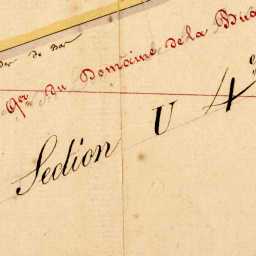 de Bar
Qer du Domaine de la Bua
Section U 4e